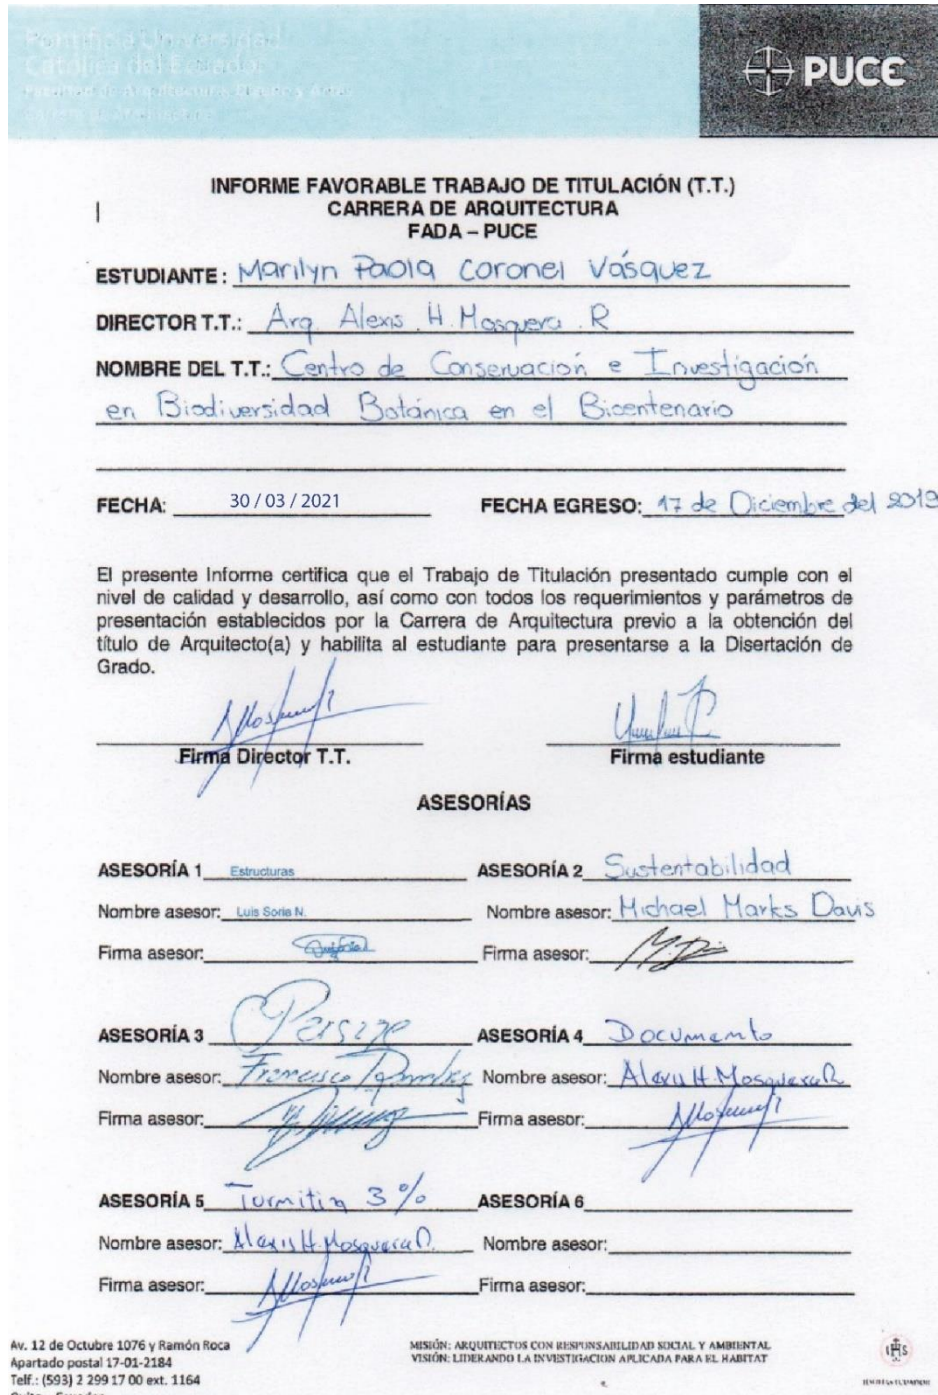 Pontificia Universidad
Católica del Ecuador
Facultad de Arquitectura, Diseño y Artes
Carrera de Arquitectura
PUCE
INFORME FAVORABLE TRABAJO DE TITULACIÓN (T.T.)
CARRERA DE ARQUITECTURA
FADA – PUCE
ESTUDIANTE: Marilyn Paola Coronel Vásquez
DIRECTOR T.T.: Arq. Alexis H. Mosquera R
NOMBRE DEL T.T.: Centro de Conservación e Investigación
en Biodiversidad Botánica en el Bicentenario
FECHA: 30 / 03 / 2021 FECHA EGRESO: 17 de Diciembre del 2019
El presente Informe certifica que el Trabajo de Titulación presentado cumple con el
nivel de calidad y desarrollo, así como con todos los requerimientos y parámetros de
presentación establecidos por la Carrera de Arquitectura previo a la obtención del
título de Arquitecto(a) y habilita al estudiante para presentarse a la Disertación de
Grado.
Firma Director T.T. Firma estudiante
ASESORÍAS
ASESORÍA 1 Estructuras ASESORÍA 2 Sustentabilidad
Nombre asesor: Luis Soria N. Nombre asesor: Michael Marks Davis
Firma asesor: Firma asesor:
ASESORÍA 3 ASESORÍA 4 Documento
Nombre asesor: Francisco Nombre asesor: Alexis H. Mosquera R.
Firma asesor: Firma asesor:
ASESORÍA 5 Turnitin 3% ASESORÍA 6
Nombre asesor: Alexis H. Mosquera R. Nombre asesor:
Firma asesor: Firma asesor:
Av. 12 de Octubre 1076 y Ramón Roca
Apartado postal 17-01-2184
Telf.: (593) 2 299 17 00 ext. 1164
Quito – Ecuador
MISIÓN: ARQUITECTOS CON RESPONSABILIDAD SOCIAL Y AMBIENTAL
VISIÓN: LIDERANDO LA INVESTIGACION APLICADA PARA EL HABITAT
IHS